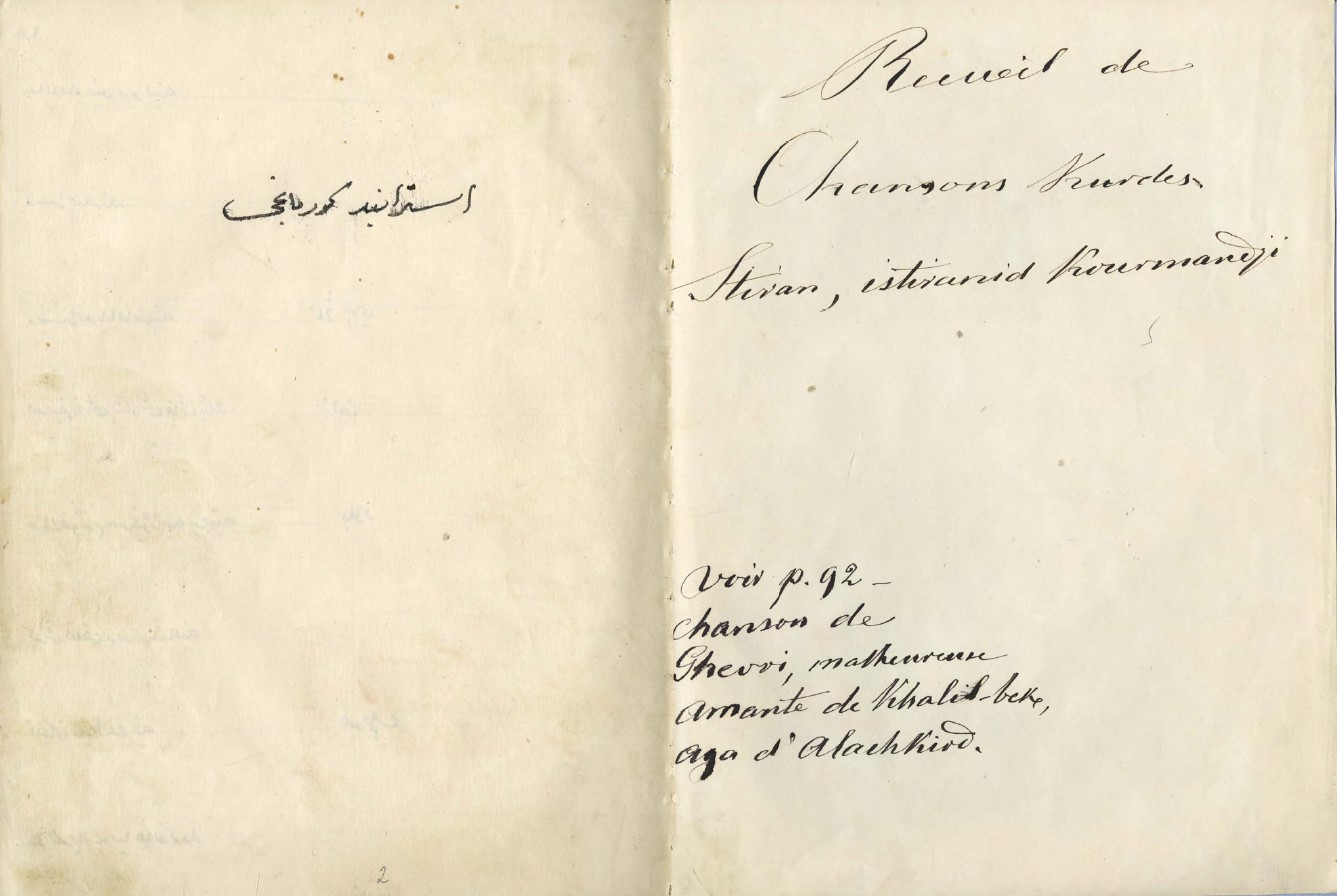 استرانید کورمانجی
2
Recueil de
Chansons Kurdes
Stiran, istiranid Kourmandji
Voir p. 92 –
chanson de
Ghevri, malheureuse
amante de Khalil-beke,
aga d'Alachkird.